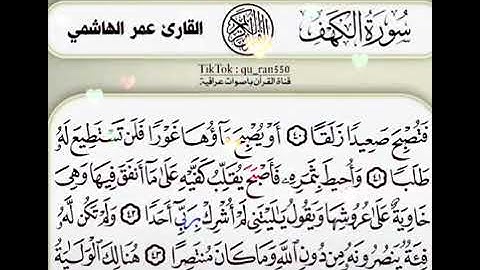 سُورَةُ الكَهْفِ
القرآن الكريم
القارئ عمر الهاشمي
TikTok : qu_ran550
قناة القرآن بأصوات عراقية
فَتُصْبِحَ صَعِيدًا زَلَقًا ٤٠ أَوْ يُصْبِحَ مَآؤُهَا غَوْرًا فَلَن تَسْتَطِيعَ لَهُۥ
طَلَبًا ٤١ وَأُحِيطَ بِثَمَرِهِۦ فَأَصْبَحَ يُقَلِّبُ كَفَّيْهِ عَلَىٰ مَآ أَنفَقَ فِيهَا وَهِىَ
خَاوِيَةٌ عَلَىٰ عُرُوشِهَا وَيَقُولُ يَٰلَيْتَنِى لَمْ أُشْرِكْ بِرَبِّىٓ أَحَدًا ٤٢ وَلَمْ تَكُن لَّهُۥ
فِئَةٌ يَنصُرُونَهُۥ مِن دُونِ ٱللَّهِ وَمَا كَانَ مُنتَصِرًا ٤٣ هُنَالِكَ ٱلْوَلَٰيَةُ